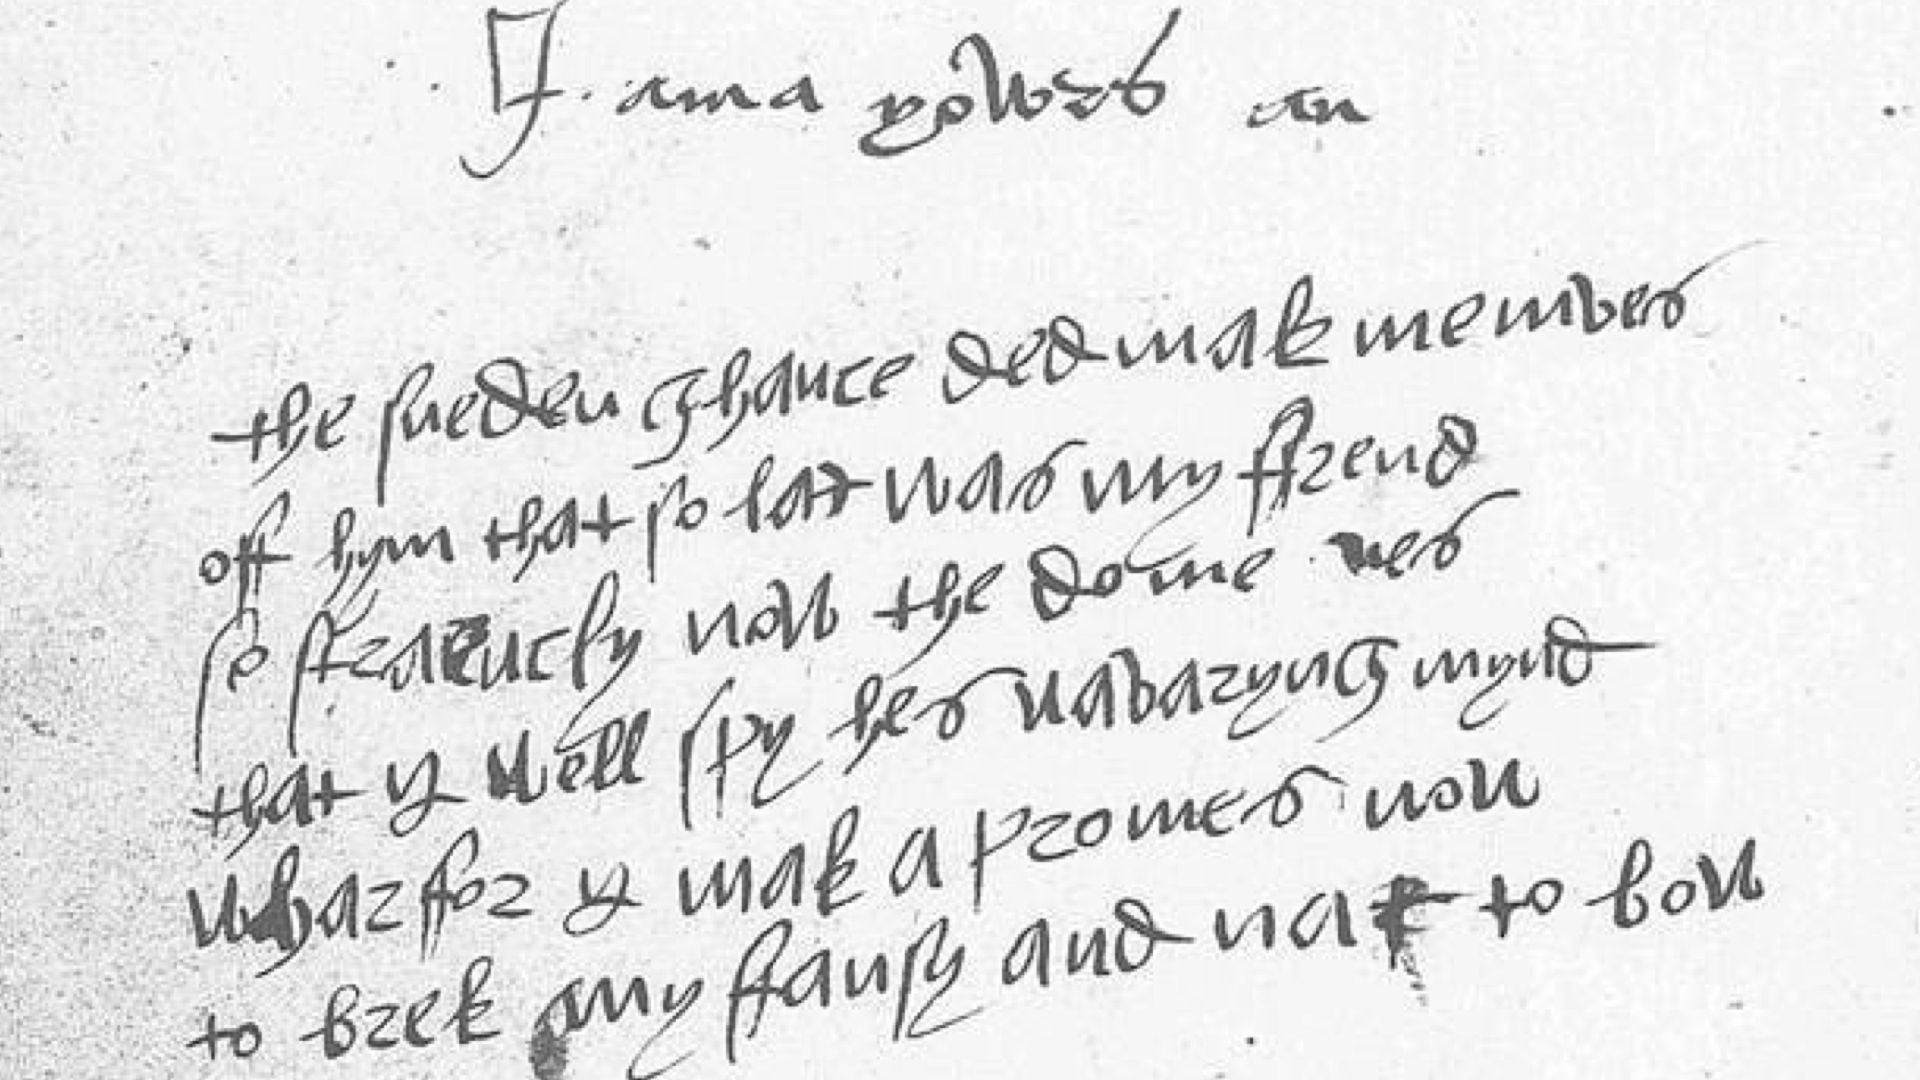 I. ama yowrs an
the sueden chance ded mak me mves
off hym that so lat was my ffrend
so straenely now the do me ues
that y well spy hes wavaryng mynd
wharffor y mak a promes now
to brek my ffansy and nat to bow